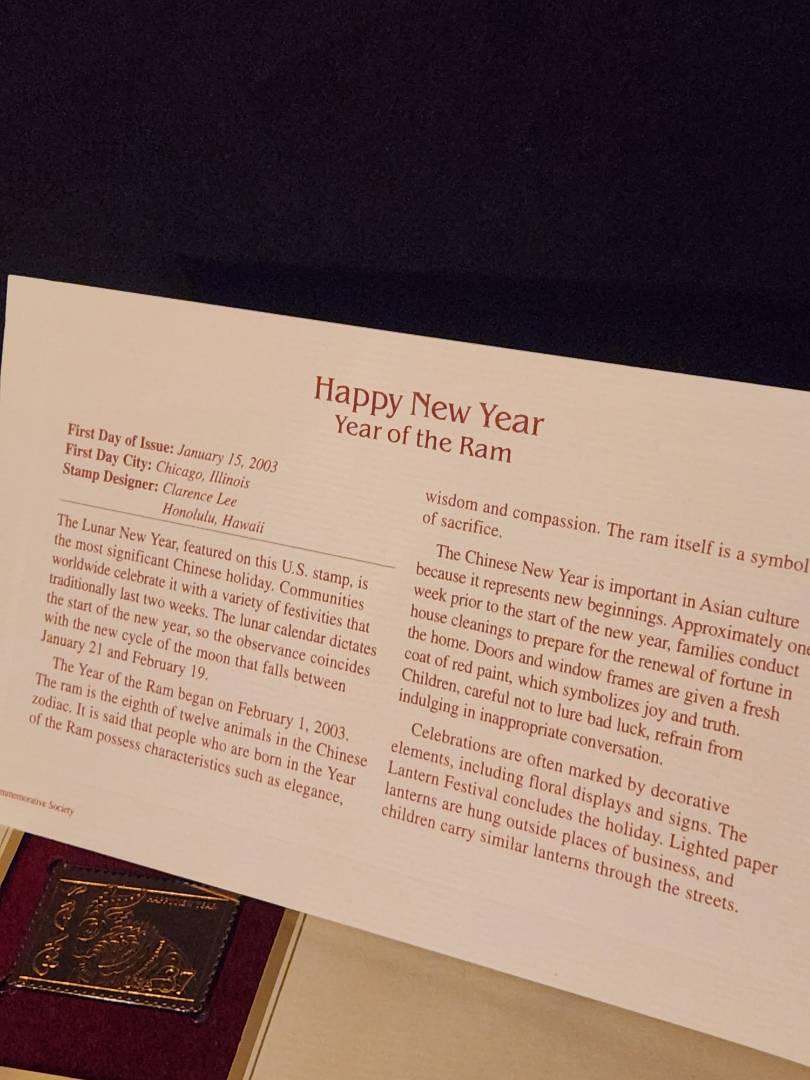 Happy New Year
Year of the Ram
First Day of Issue: January 15, 2003
First Day City: Chicago, Illinois
Stamp Designer: Clarence Lee
Honolulu, Hawaii
The Lunar New Year, featured on this U.S. stamp, is
the most significant Chinese holiday. Communities
worldwide celebrate it with a variety of festivities that
traditionally last two weeks. The lunar calendar dictates
the start of the new year, so the observance coincides
with the new cycle of the moon that falls between
January 21 and February 19.
The Year of the Ram began on February 1, 2003.
The ram is the eighth of twelve animals in the Chinese
zodiac. It is said that people who are born in the Year
of the Ram possess characteristics such as elegance,
wisdom and compassion. The ram itself is a symbol
of sacrifice.
The Chinese New Year is important in Asian culture
because it represents new beginnings. Approximately one
week prior to the start of the new year, families conduct
house cleanings to prepare for the renewal of fortune in
the home. Doors and window frames are given a fresh
coat of red paint, which symbolizes joy and truth.
Children, careful not to lure bad luck, refrain from
indulging in inappropriate conversation.
Celebrations are often marked by decorative
elements, including floral displays and signs. The
Lantern Festival concludes the holiday. Lighted paper
lanterns are hung outside places of business, and
children carry similar lanterns through the streets.
mmemorative Society
HAPPY NEW YEAR
37